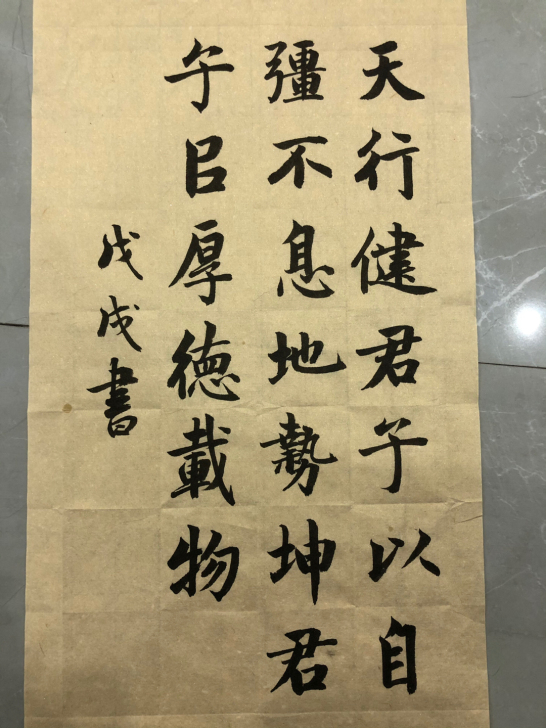 天行健君子以自
彊不息地勢坤君
子㠯厚德載物
戊戌書